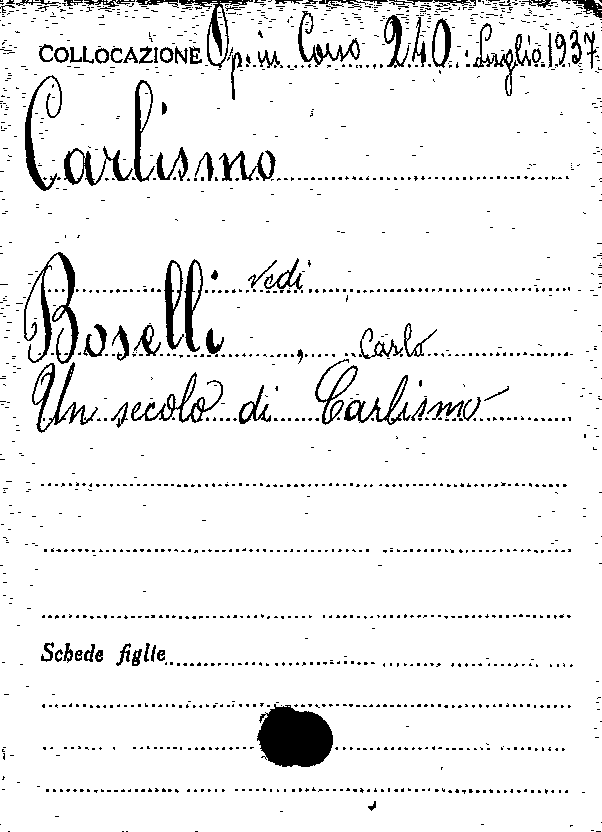 COLLOCAZIONE Op. in Corso 240. Luglio 1937
Carlismo
vedi
Boselli, Carlo
Un secolo di Carlismo
Schede figlie